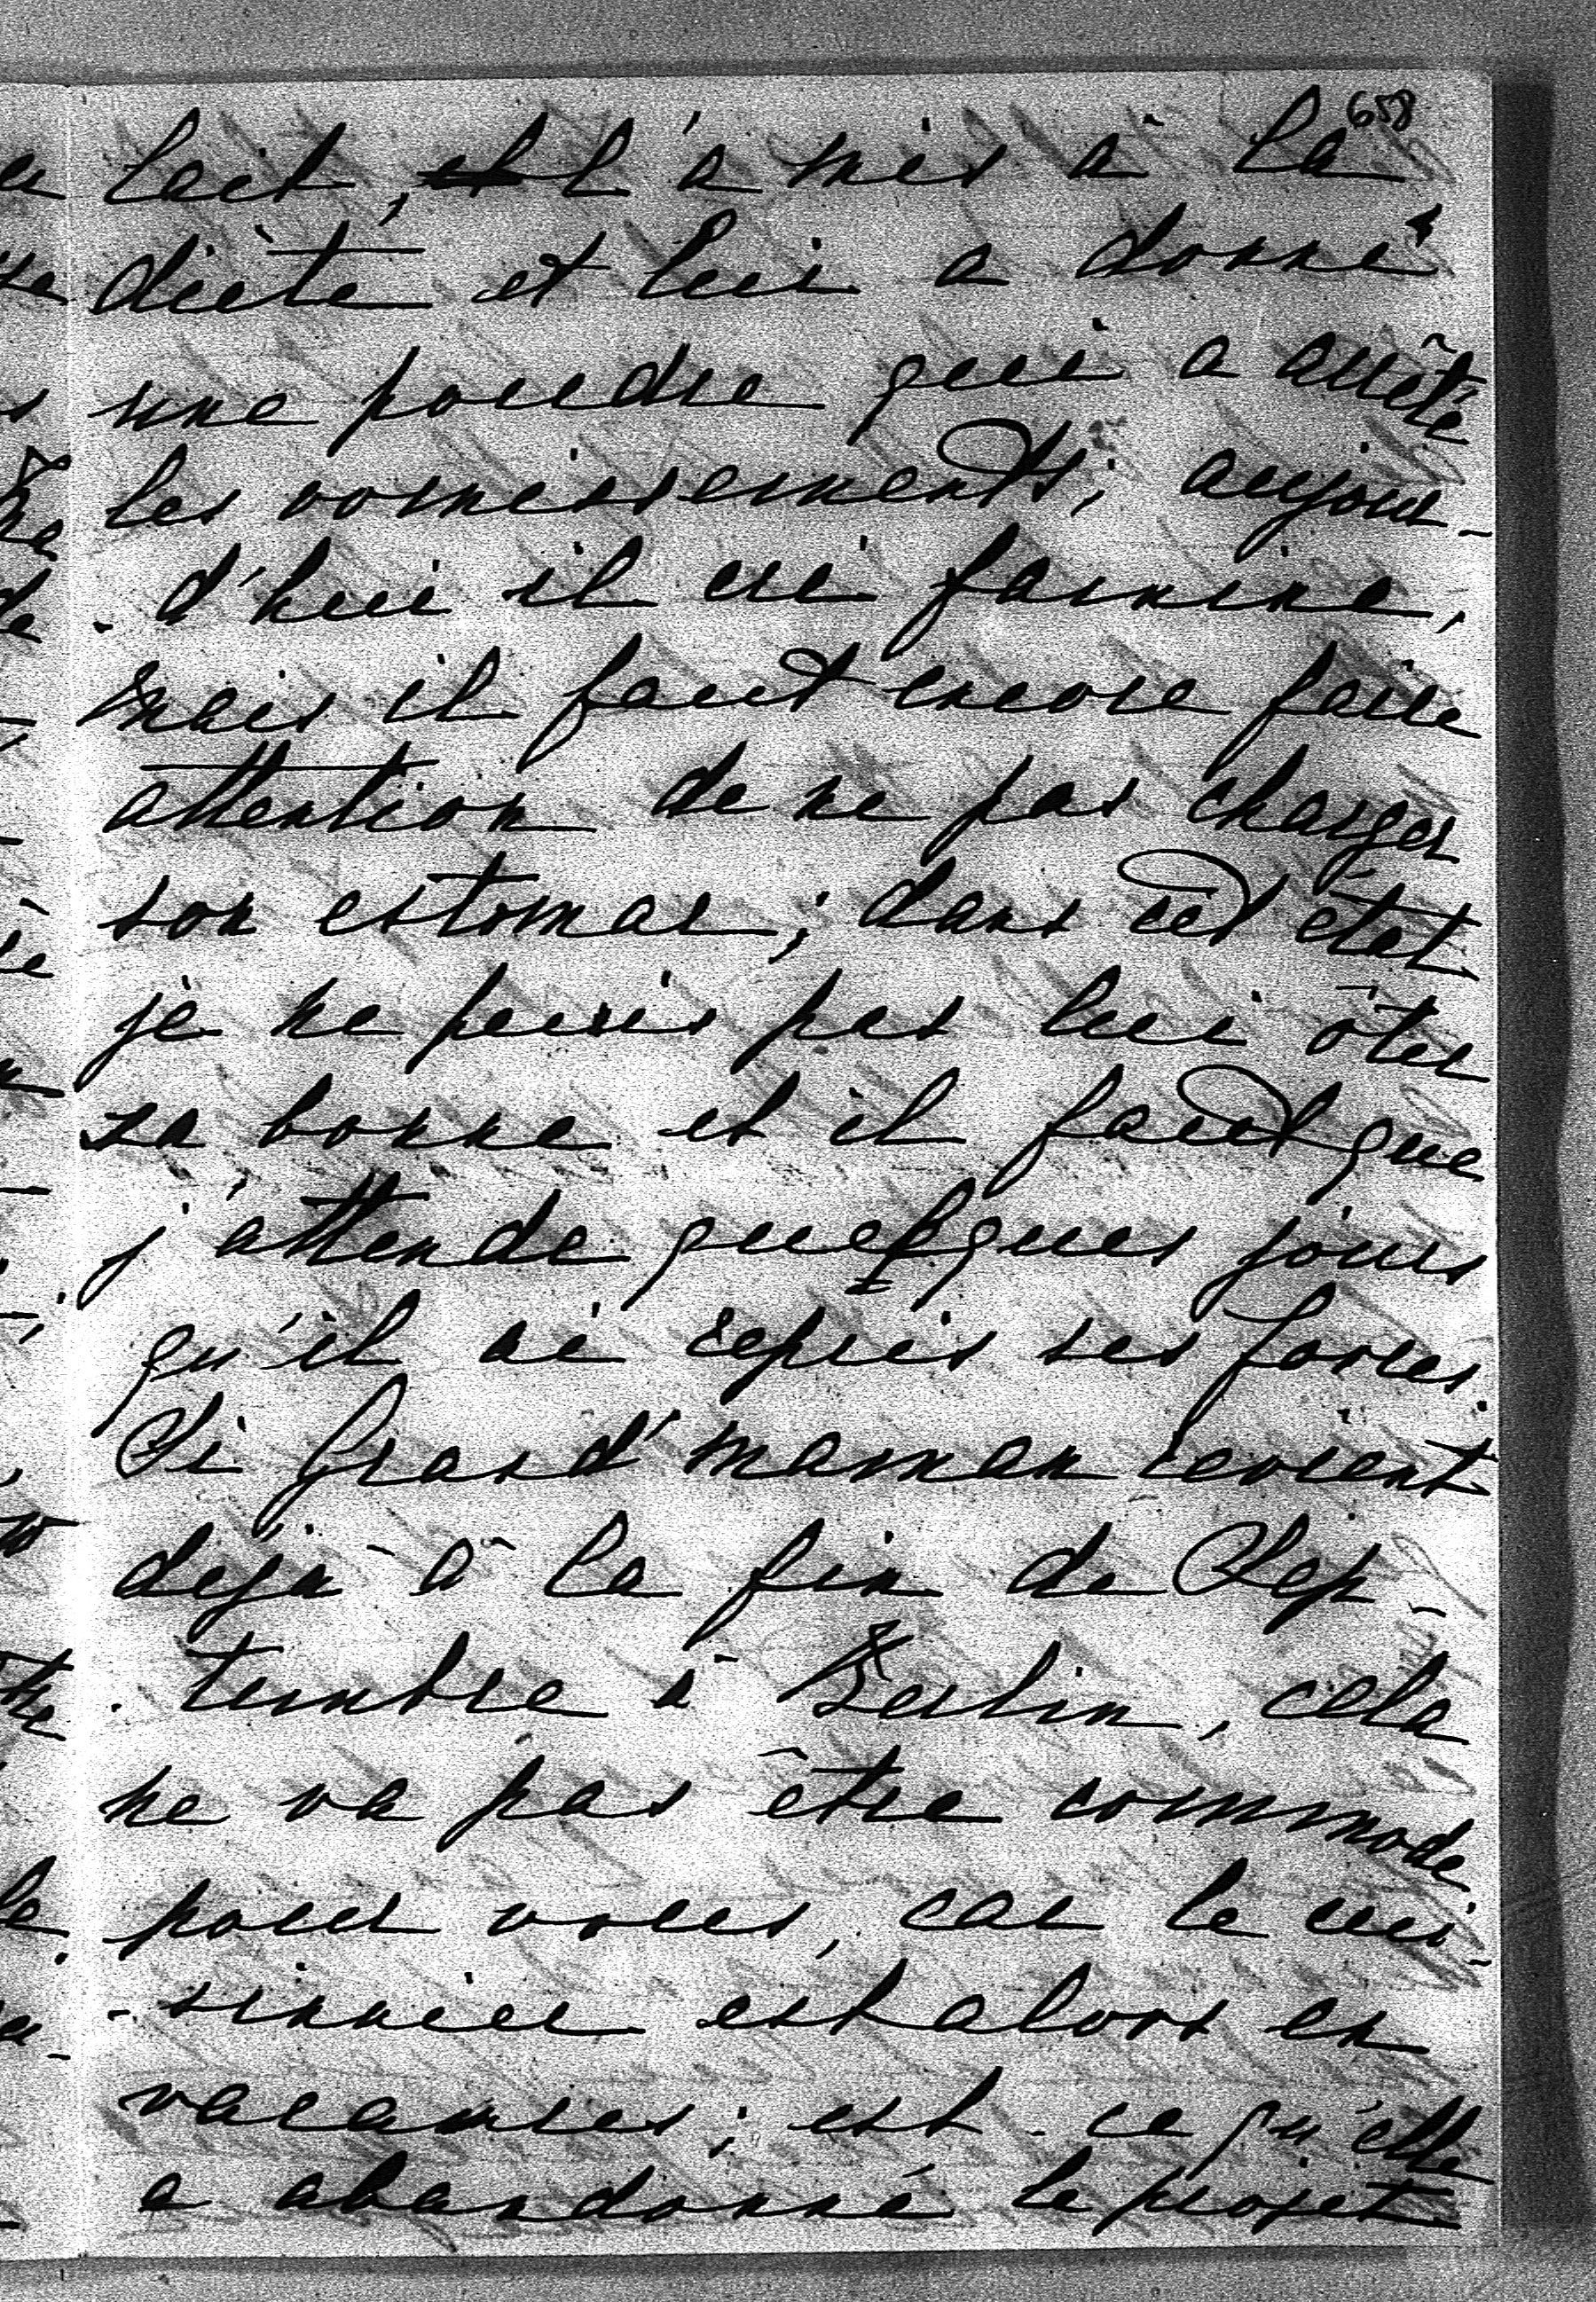 658
lait, et l'a mis à la
diète et lui a donné
une poudre qui a arrêté
les vomissements; aujour-
- d'hui il crie famine,
mais il faut encore faire
attention de ne pas charger
son estomac; dans cet état
je ne puis pas lui ôter
sa bonne et il faut que
j'attende quelques jours
qu'il ai repris ses forces.
Si Grand'maman revient
déjà à la fin de Sep-
- tembre à Berlin, cela
ne va pas être commode
pour vous, car le cui-
- sinier est alors en
vacances; est-ce qu'elle
a abandonné le projet